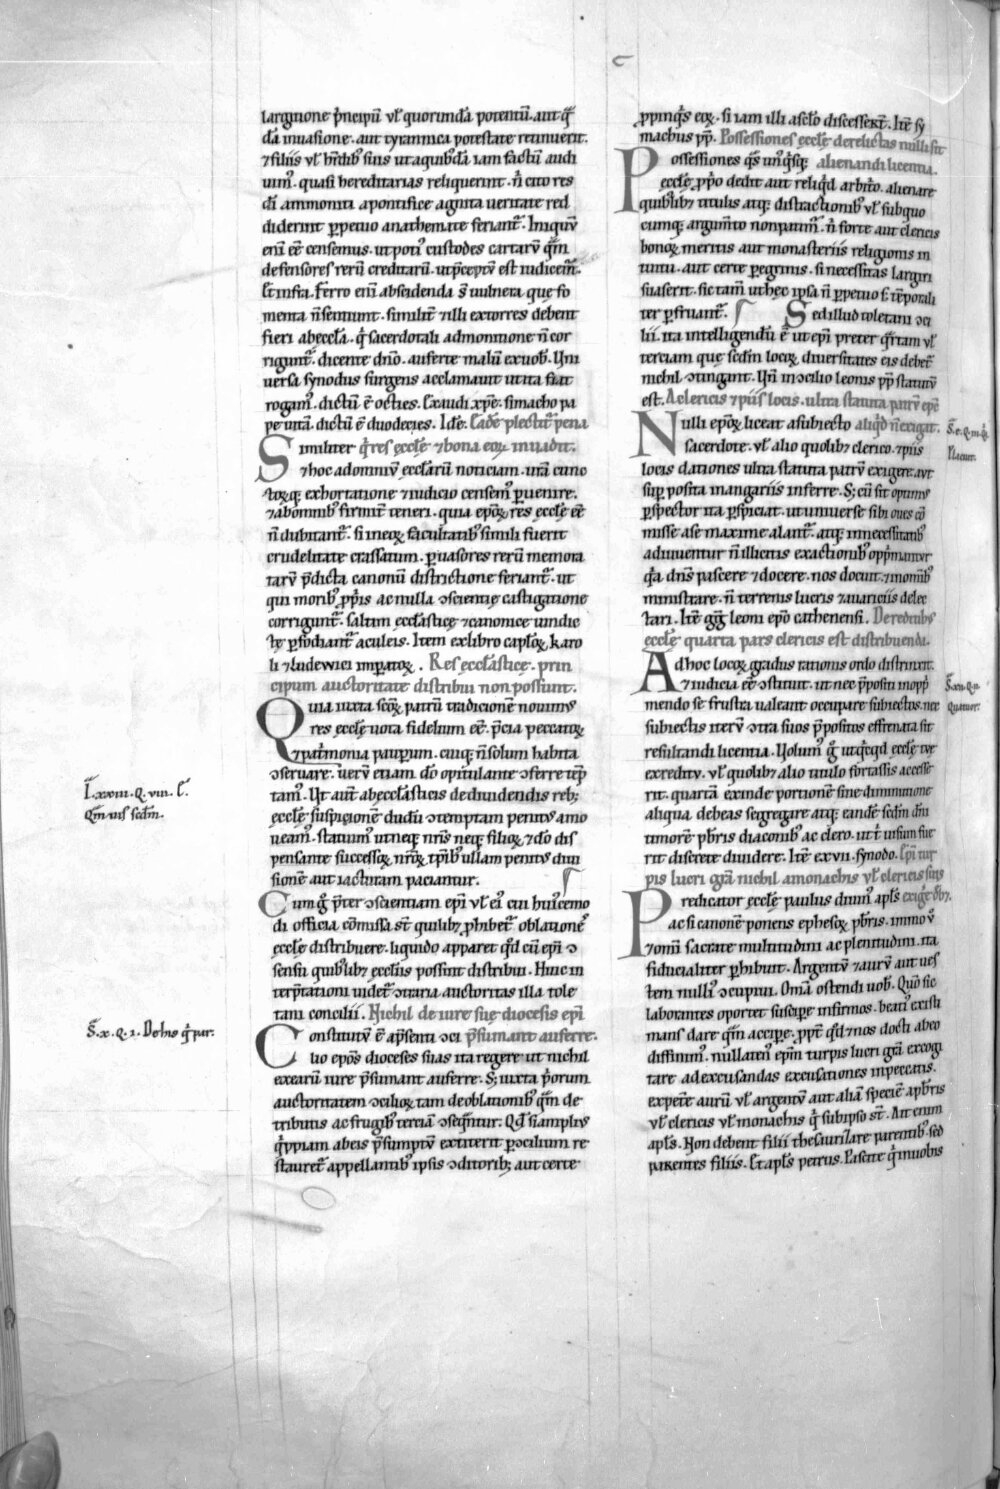 largitione p̃ncipũ vł quorundã potentũ. aut q̃
dã inuasione. aut tyrannica potestate retinuerit.
⁊ filiis vł heredibꝰ suis ut a quibꝰdã iam factũ audi
uimꝰ. quasi hereditarias reliquerint. ñ cito res
di ammoniti a pontifice agnita ueritate red
diderint ꝑpetuo anathemate feriant᷑. Iniquũ
eni ẽẽ censemus. ut potiꝰ custodes cartarũ q̃m
defensores rerũ creditarũ. ut p̃ceptũ est iudicem᷑.
Et infra. Ferro eni abscidenda s̃ uulnera que fo
menta ñ sentiunt. similit̃ ⁊ illi extorres debent
fieri ab eccła. q̃ sacerdotali admonitione ñ cor
rigunt᷑. dicente dño. auferte malũ ex uobꝰ. Uni
uersa synodus surgens acclamauit ut ita fiat
rogamꝰ. dictũ ẽ octies. Exaudi xp̃e. simacho pa
pe uita. dictũ ẽ duodecies. Idẽ. Eadẽ plectit᷑ pena
Similiter q̃ res eccłę ⁊ bona eoꝝ inuadit.
⁊ hoc ad omniũ eccłarũ noticiam. una cunc
toꝝ exhortatione ⁊ iudicio censemꝰ ꝑuenire.
⁊ ab omnibꝰ firmit̃ teneri. quia ep̃oꝝ res eccłę ẽẽ
ñ dubitant᷑. si in eoꝝ facultatibꝰ simili fuerit
crudelitate crassatum. ꝑuasores rerũ memora
tarũ p̃dicta canonũ districtione feriant᷑. ut
qui moribꝰ ꝓp̃is ac nulla ɔscientię castigatione
corrigunt᷑. saltim eccłasticę ⁊ canonice uindic
tę ꝑfodiant᷑ aculeis. Item ex libro capłoꝝ karo
li ⁊ ludewici imꝑatoꝝ. Res eccłastice. prin
cipum auctoritate distribui non possunt.
Quia iuxta sc̃oꝝ patrũ tradicionẽ nouimꝰ
res eccłę uota fidelium ẽẽ. p̃cia peccatoꝝ
⁊ pat̃monia pauꝑum. cuiqꝫ ñ solum habita
ɔseruare. uerũ etiam dõ opitulante ɔferre up̃
tamꝰ. Ut aut̃ ab eccłasticis de diuidendis rebꝫ
eccłę suspicionẽ dudũ ɔtemptam penitꝰ amo
ueamꝰ. statuimꝰ ut neqꝫ nr̃is neqꝫ filioꝝ ⁊ dõ dis
pensante successoꝝ nr̃oꝝ tp̃ibꝰ ullam penitꝰ diui
sionẽ aut iacturam paciantur.
Cum g̃ p̃ter ɔscientiam ep̃i vł eiꝰ cui huiꝰcemo
di officia cõmissa st̃ quilibꝫ ꝓhibet᷑ oblationẽ
eccłę distribuere. liquido apparet qd̃ cũ ep̃i ɔ
sensu quibꝰlibꝫ eccłiis possint distribui. Huic in
terp̃tationi uidet᷑ ɔtraria auctoritas illa tole
tani concilii. Nichil de iure sue diocesis ep̃i
Constitutũ ẽ a p̃senti ɔci p̃sumant auferre.
lio ep̃os dioceses suas ita regere ut nichil
ex earũ iure p̃sumant auferre. Sꝫ iuxta p̃orum
auctoritatem ɔcilioꝝ tam de oblationibꝰ q̃m de
tributis ac frugibꝰ terciã ɔseq̃ntur. Qd̃ si ampliꝰ
q̃ppiam ab eis p̃sumptũ extiterit ꝑ ɔcilium re
stauret᷑ appellantibꝰ ipsis ɔditoribꝫ aut certe
ꝓpinq̃s eoꝝ. si iam illi a sc̃lo discesserũt. Itẽ sy
machus pp̃. Possessiones eccłę derelictas nulli sit
Possessiones q̃s unꝰq̃sqꝫ alienandi licentia.
eccłę ꝓp̃o dedit aut reliq̃d arbit̃o. alienare
quibꝰlibꝫ titulis atqꝫ distractionibꝰ vł sub quo
cumqꝫ argumt̃o non patimꝰ. ñ forte aut clericis
bonoꝝ meritis aut monasteriis religionis in
tuitu. aut certe ꝑegrinis. si necessitas largiri
suaserit. sic tam̃ ut hec ipsa ñ ꝑpetuo s̃ tẽporali
ter ꝑfruant᷑. Sed illud toletani ɔci
lii. ita intelligendũ ẽ ut ep̃i preter q̃rtam vł
terciam que sedm̃ locoꝝ diuersitates eis debet᷑
nichil ɔtingant. Un̄ in ɔcilio leonis pp̃ statutũ
est. A clericis ⁊ piis locis. ultra statuta patrũ ep̃ẽ
Nulli ep̃oꝝ liceat a subiecto aliq̃d ñ exigat.
sacerdote. vł alio quolibꝫ clerico. ⁊ piis
locis dationes ultra statuta patrũ exigere. aut
suꝑ posita mangariis inferre. Sꝫ cũ sit optimꝰ
ꝑspector ita ꝑspiciat. ut uniuerse sibi oues cõ
misse a se maxime alant᷑. atqꝫ in necessitatibꝰ
adiuuentur ñ illicitis exactionibꝰ opp̃mantur
q̃a dñs pascere ⁊ docere. nos docuit. ⁊ in omibꝰ
ministrare. ñ terrenis lucris ⁊ auariciis delec
tari. Itẽ gg̃ leoni ep̃o cathenensi. De reditibꝰ
eccłę quarta pars clericis est distribuendi.
Ad hoc locoꝝ gradus rationis ordo distinxit.
⁊ iudicia ẽẽ ɔstituit. ut nec p̃positi in opp̃
mendo se frustra ualeant occupare subiectos. nec
subiectis iterũ ɔtra suos p̃positos effrenata sit
resultandi licentia. Uolumꝰ g̃ ut q̃cq̃d eccłę tuę
ex reditu. vł quolibꝫ alio titulo fortassis accesse
rit. quartã exinde portionẽ sine diminutione
aliqua debeas segregare atqꝫ eandẽ sedm̃ dñi
timorẽ p̃bris diaconibꝰ ac clero. ut t̃ uisum fue
rit discrete diuidere. Itẽ ex vii. synodo. Ep̃i tur
pis lucri gr̃a nichil a monachis vł clericis suis
Predicator eccłę paulus diuinꝰ apłs exig̃e dẽbꝫ.
ac si canonẽ ponens ephesoꝝ p̃bris. immo ũ
⁊ omĩ sacrate multitudini ac plenitudini. ita
fiducialiter ꝑhibuit. Argentũ ⁊ aurũ aut ues
tem nulliꝰ ɔcupiui. Omã ostendi uob̃. Quõ sic
laborantes oportet suscipe infirmos. beatiꝰ existi
mans dare q̃m accipe. ꝓpt̃ qd̃ ⁊ nos docti ab eo
diffinimꝰ. nullatenꝰ ep̃m turpis lucri gr̃a excogi
tare ad excusandas excusationes in peccatis.
expetẽ aurũ vł argentũ aut aliã speciẽ a p̃bris
vł clericis vł monachis q̃ sub ipso st̃. Ait enim
apłs. Non debent filii thesaurizare parentibꝰ. sed
parentes filiis. Et apłs petrus. Pascite q̃ in uobis
I. xxiii. Q. viii. C̃
Qm̃ uis sedm̃.
S̃. x. Q. 1. De his q̃ par.